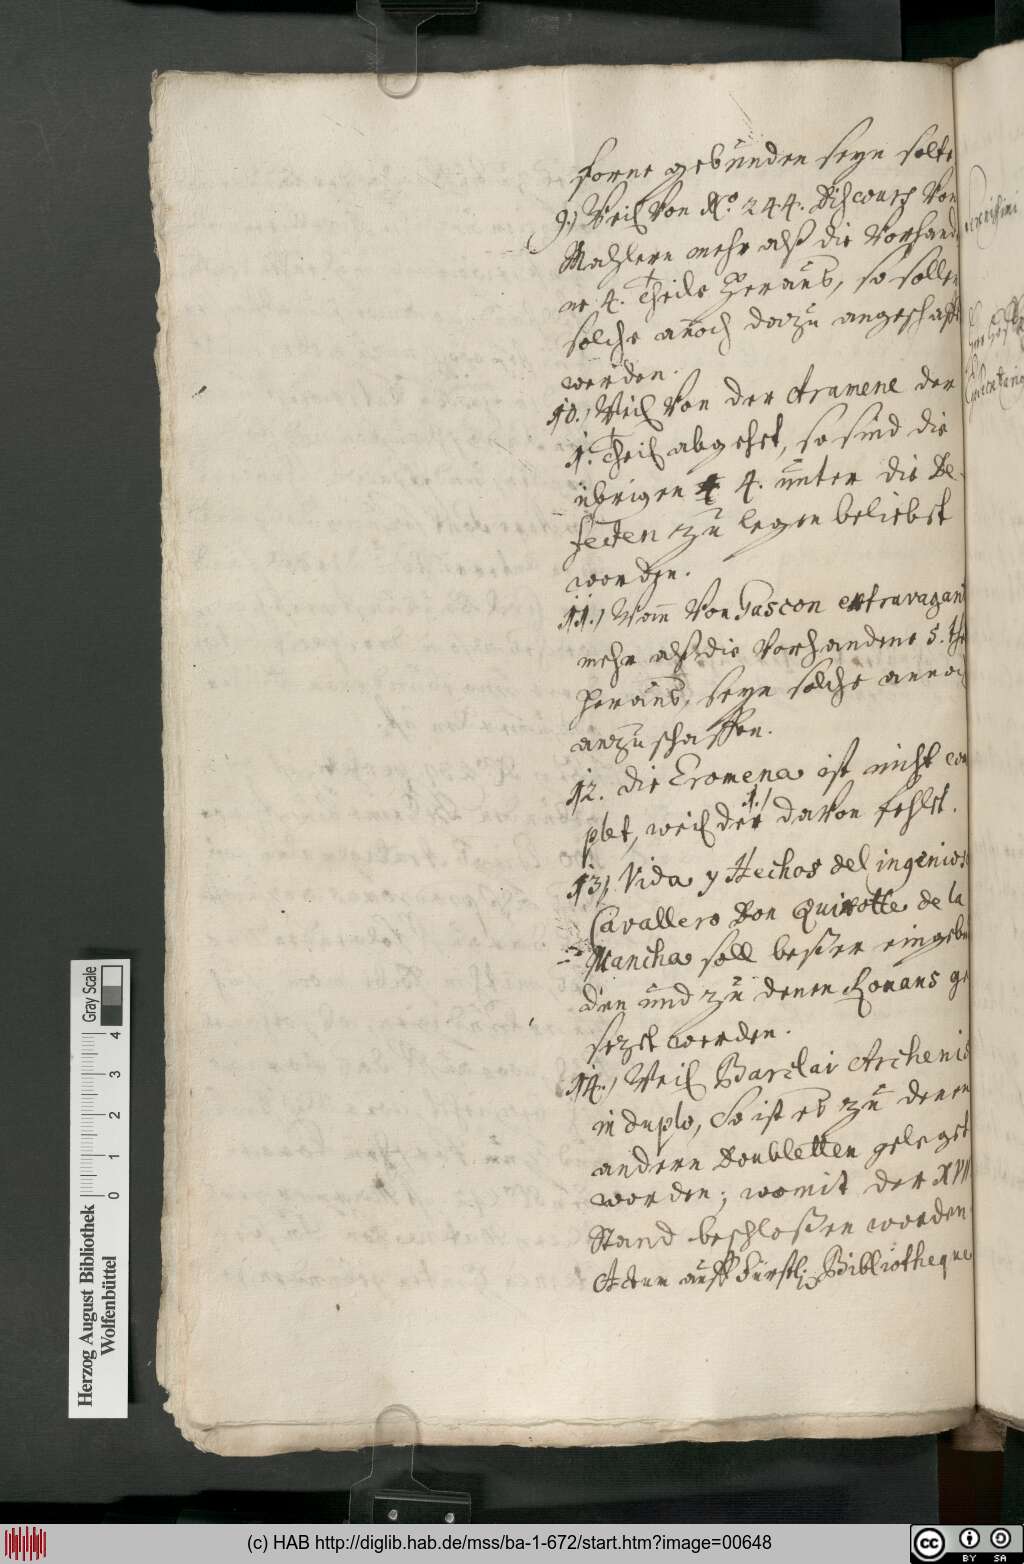 forne gebunden seyn solte
9.) Weil von No. 244. Discours von
Mahlern mehr alß die vorhand
ne 4. Theile herauß, so sollen
solche annoch dazu angeschaff
werden.
10.) Weil von der Aramene der
1. Theil abgehet, so sind die
übrigen 4. unter die De-
fecten zu legen beliebet
worden.
11.) Wann von Gascon extravagant
mehr alß die vorhandene 5. the
herauß, seyn solche annoch
anzuschaffen.
12. die Eromena ist nicht com
plet, weil der 1.) davon fehlet.
13.) Vida y Hechos del ingenioso
Cavallero Don Quixotte de la
Mancha soll beßer eingebu
den und zu denen Romans ge
sezet werden.
14.) Weil Barclai Archenis
in duplo, so ist es zu denen
andern Doubletten geleget
worden; womit der XVII
Stand beschloßen worden
Actum auff Fürstl. Bibliotheque
Herzog August Bibliothek
Wolfenbüttel
0 1 2 3 4
Gray Scale
(c) HAB http://diglib.hab.de/mss/ba-1-672/start.htm?image=00648
cc BY SA